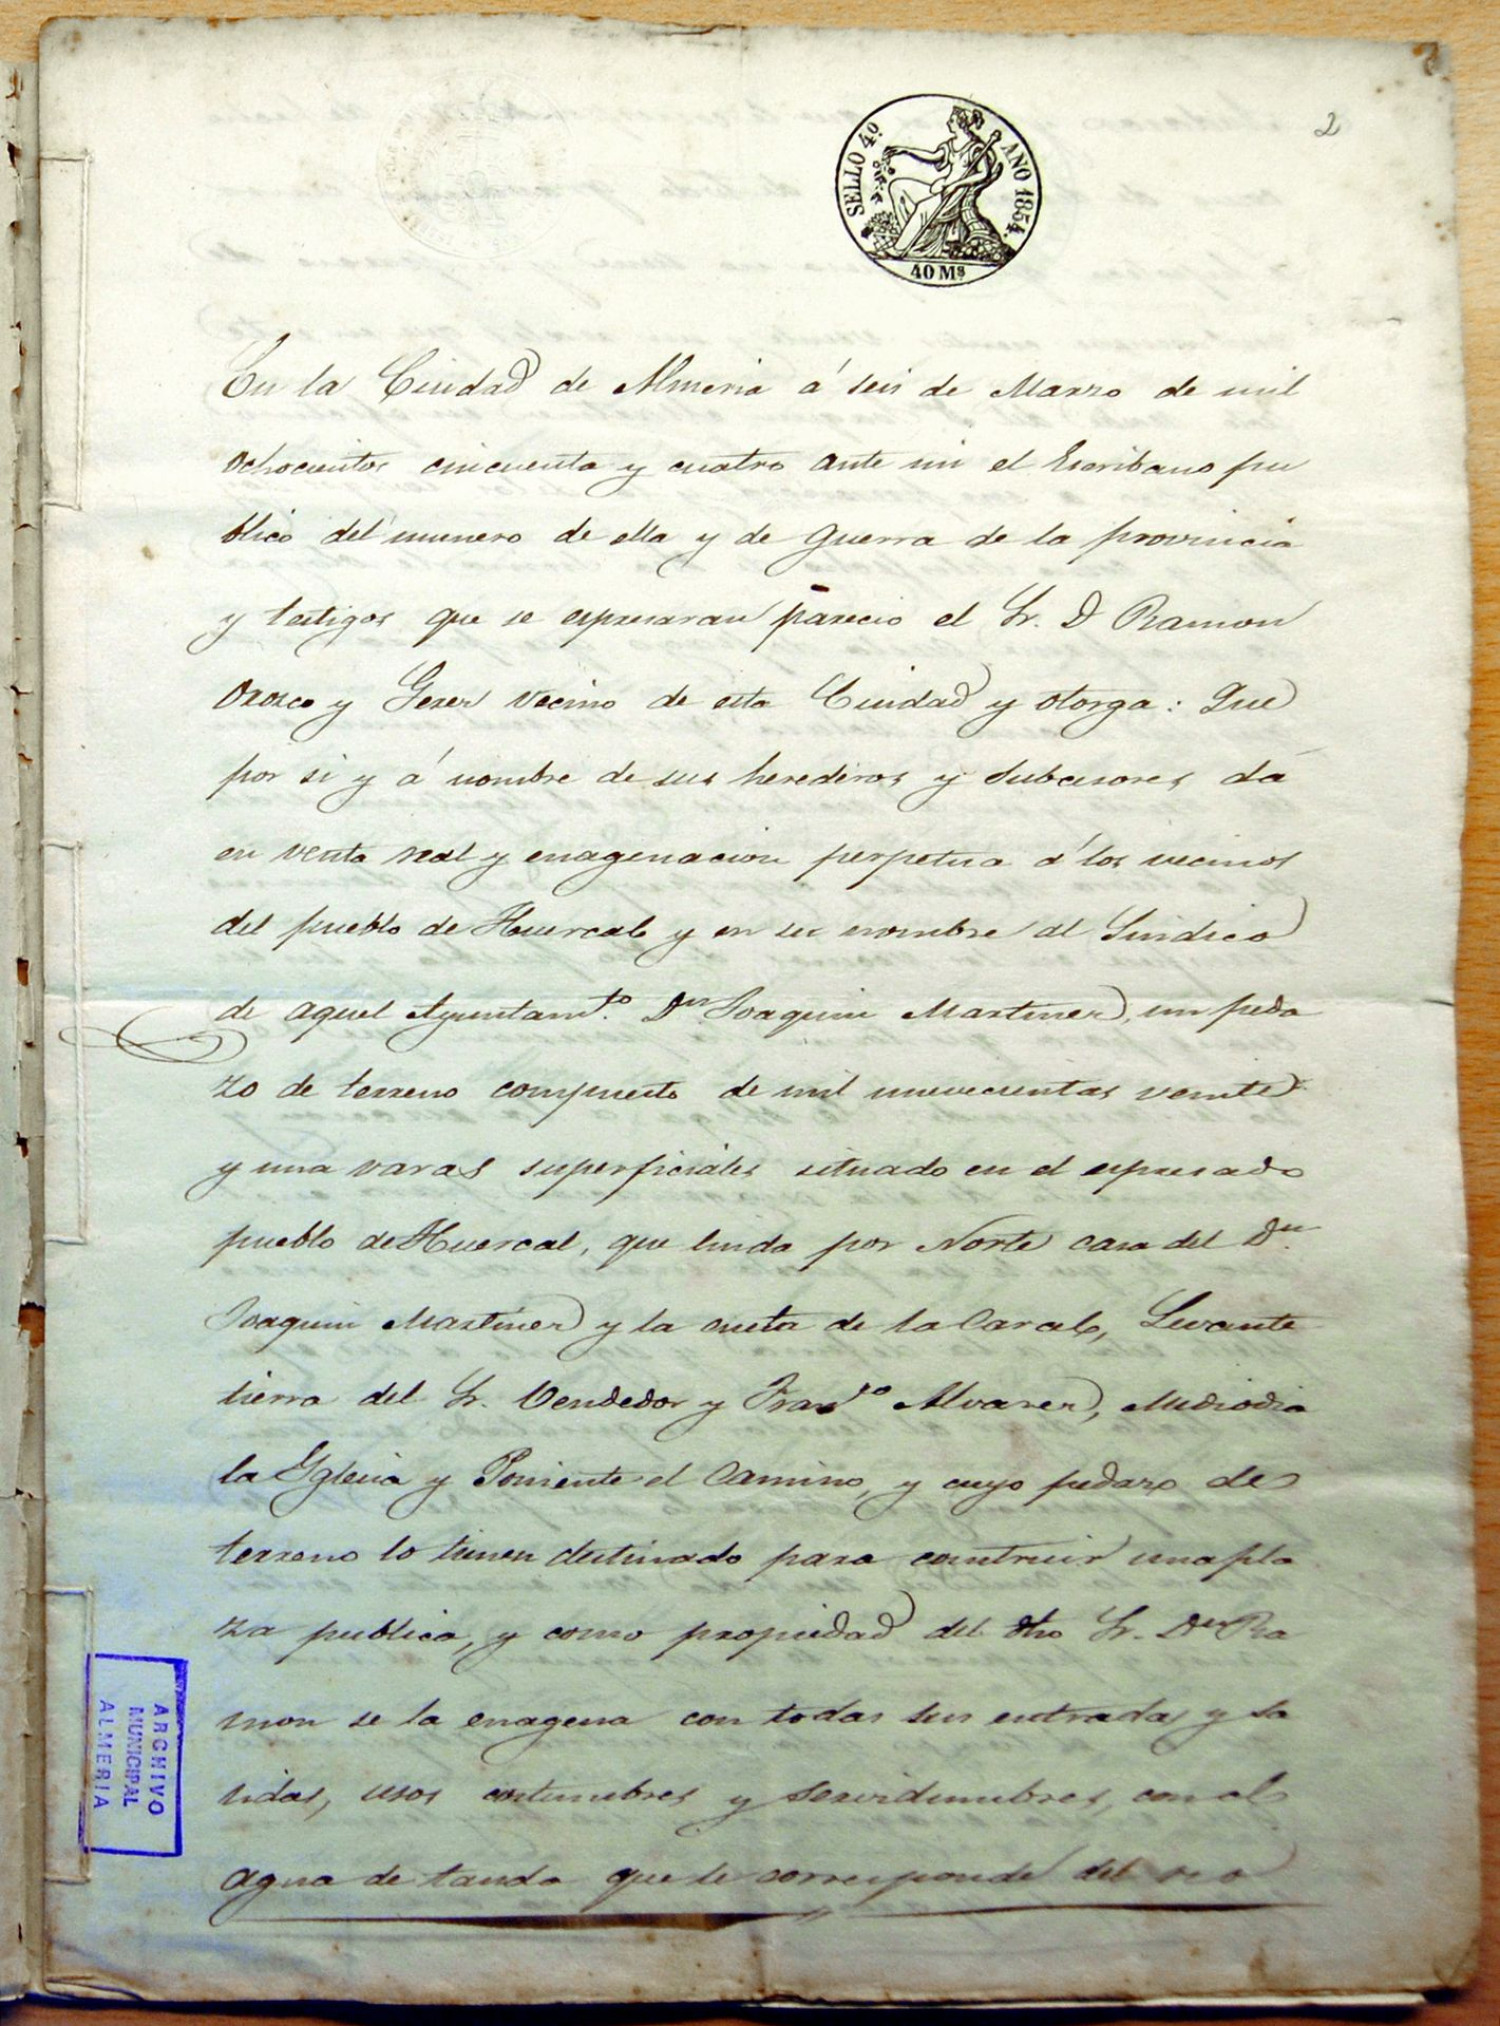 2
SELLO 4º. AÑO 1854.
40 Ms
En la Ciudad de Almeria á seis de Marzo de mil
ochocientos cincuenta y cuatro ante mi el Escribano pu
blico del numero de ella y de Guerra de la provincia
y testigos que se espresaran parecio el Sr. D Ramon
Orozco y Gerez vecino de esta Ciudad y otorga: Que
por si y á nombre de sus herederos y subcesores dá
en venta real y enagenacion perpetua á los vecinos
del pueblo de Huercal y en su nombre al Sindico
de aquel Ayuntamto. Dn Joaquin Martinez, un peda
zo de terreno compuesto de mil nuevecientas veinte
y una varas superficiales situado en el espresado
pueblo de Huercal, que linda por Norte casa del Dn.
Joaquin Martinez y la de la Carcel, Levante
tierra del Sr. Vendedor y Franco Alvarez, Mediodia
la Yglesia y Poniente el Camino, y cuyo pedazo de
terreno lo tienen destinado para construir una pla
za publica, y como propiedad del dho Sr. Dn Ra
mon se la enagena con todas sus entradas y sa
lidas, usos costumbres y servidumbres, con el
agua de tanda que le corresponde del rio
ARCHIVO
MUNICIPAL
ALMERIA